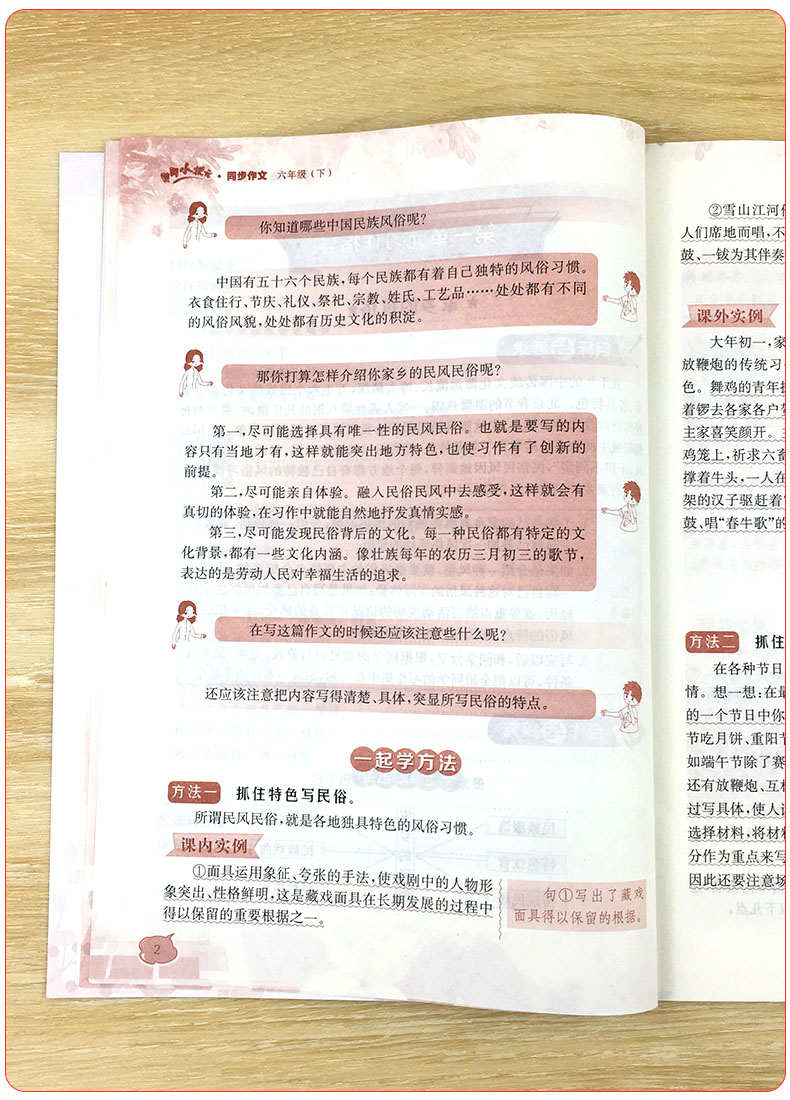 小状元·同步作文 六年级(下)
你知道哪些中国民族风俗呢?
中国有五十六个民族,每个民族都有着自己独特的风俗习惯。
衣食住行、节庆、礼仪、祭祀、宗教、姓氏、工艺品……处处都有不同
的风俗风貌,处处都有历史文化的积淀。
那你打算怎样介绍你家乡的民风民俗呢?
第一,尽可能选择具有唯一性的民风民俗。也就是要写的内
容只有当地才有,这样就能突出地方特色,也使习作有了创新的
前提。
第二,尽可能亲自体验。融入民俗民风中去感受,这样就会有
真切的体验,在习作中就能自然地抒发真情实感。
第三,尽可能发现民俗背后的文化。每一种民俗都有特定的文
化背景,都有一些文化内涵。像壮族每年的农历三月初三的歌节,
表达的是劳动人民对幸福生活的追求。
在写这篇作文的时候还应该注意些什么呢?
还应该注意把内容写得清楚、具体,突显所写民俗的特点。
一起学方法
方法一 抓住特色写民俗。
所谓民风民俗,就是各地独具特色的风俗习惯。
课内实例
①面具运用象征、夸张的手法,使戏剧中的人物形
象突出、性格鲜明,这是藏戏面具在长期发展的过程中
得以保留的重要根据之一。
句①写出了藏戏
面具得以保留的根据。
2
②雪山江河
人们席地而唱,不
鼓、一钹为其伴奏
课外实例
大年初一,家
放鞭炮的传统习
色。舞鸡的青年
着锣去各家各户
主家喜笑颜开。
鸡笼上,祈求六畜
撑着牛头,一人在
架的汉子驱赶着
鼓、唱“春牛歌”的
方法二 抓住
在各种节日
情。想一想:在最
的一个节日中你
节吃月饼、重阳节
如端午节除了赛
还有放鞭炮、互相
过写具体,使人
选择材料,将材
分作为重点来写
因此还要注意场
下几点。